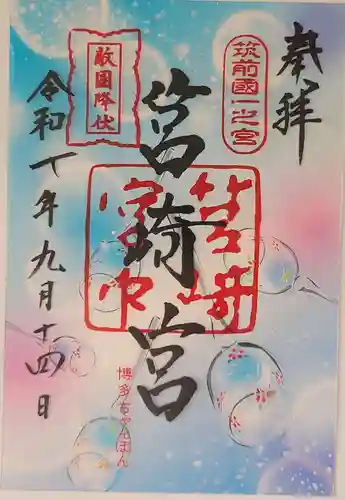 奉拝
筑前國一之宮
筥崎宮
敵国降伏
筥崎宮印
博多ちゃんぽん
令和丁年九月十四日